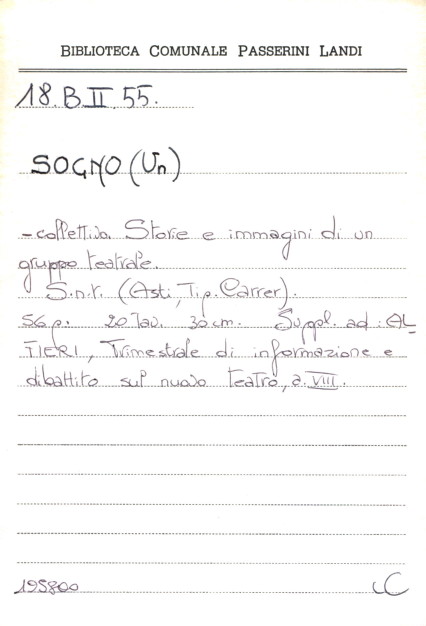 BIBLIOTECA COMUNALE PASSERINI LANDI
18. B. II. 55.
SOGNO (Un)
- collettivo. Storie e immagini di un
gruppo teatrale.
S.n.t. (Asti, Tip. Carrer).
56 p. 20 tav. 30 cm. Suppl. ad: AL
TIERI, Trimestrale di informazione e
dibattito sul nuovo teatro, a. VIII.
195800